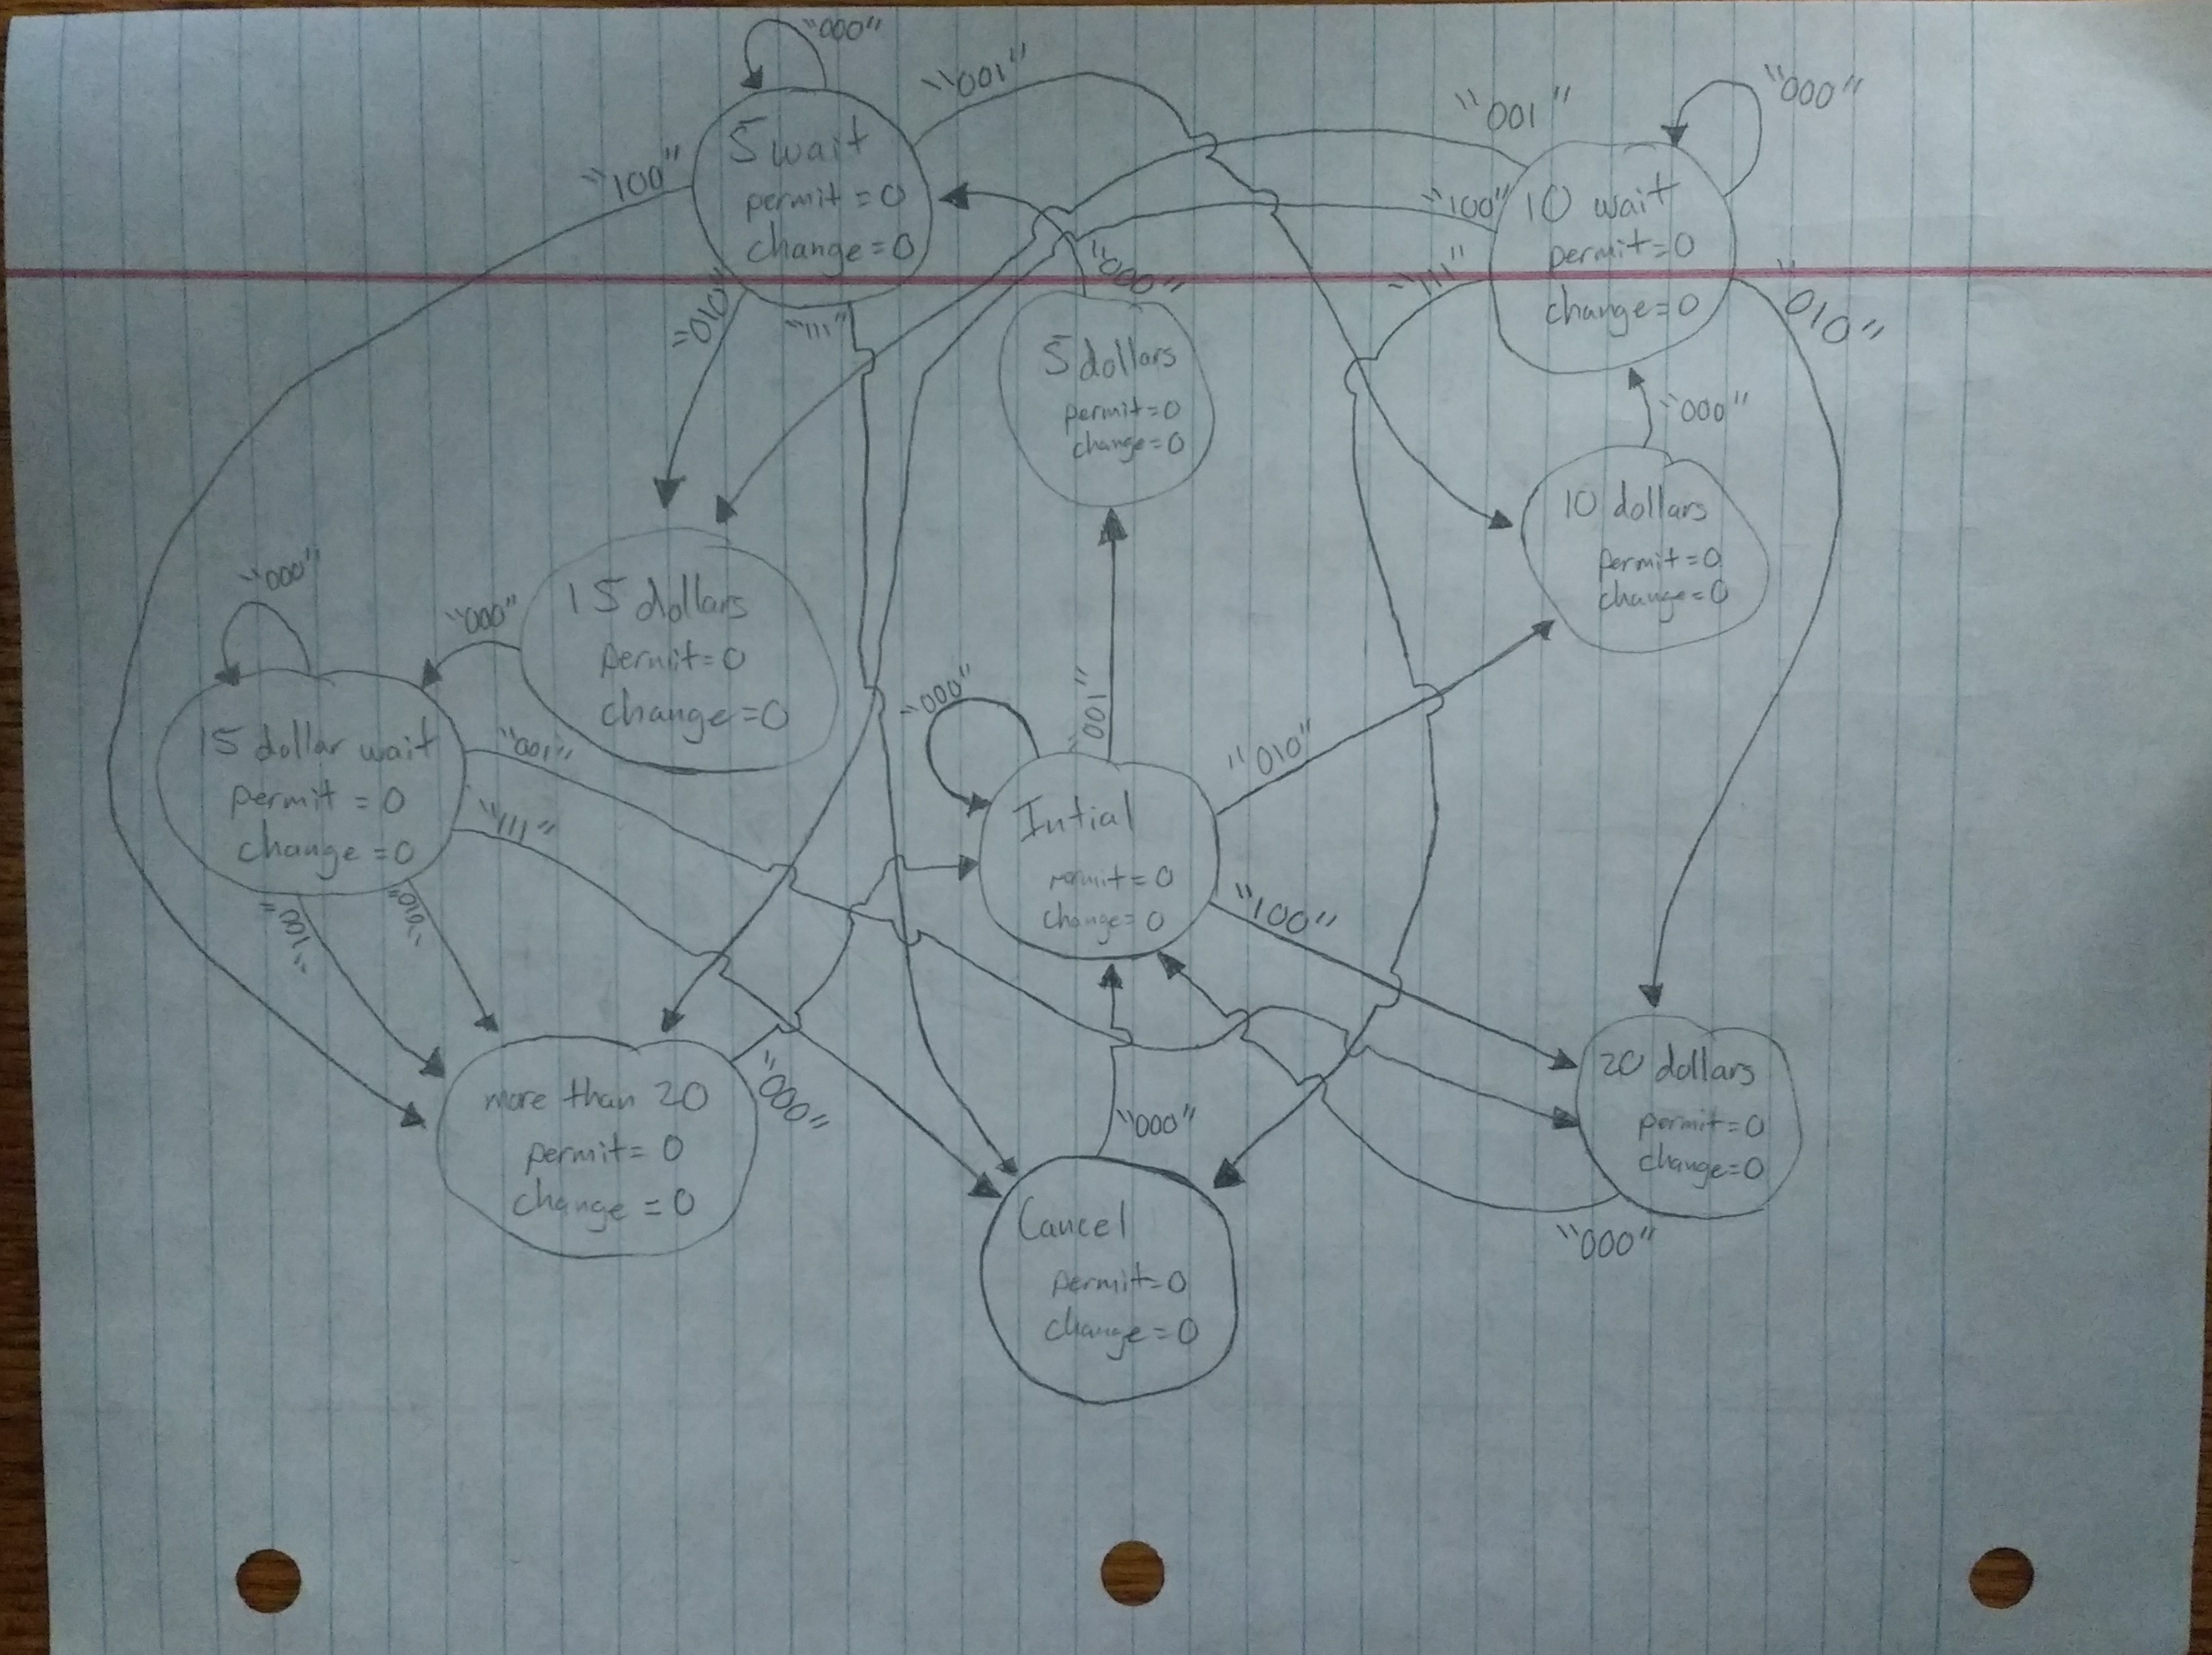 "000"
"001"
"001"
"000"
"100"
5 wait
permit = 0
change = 0
"100"
10 wait
permit = 0
change = 0
"010"
"111"
"000"
"111"
"010"
5 dollars
permit = 0
change = 0
"000"
10 dollars
permit = 0
change = 0
"000"
"000"
15 dollars
permit = 0
change = 0
"000"
"001"
"010"
15 dollar wait
permit = 0
change = 0
"001"
"111"
"100"
"010"
Intial
permit = 0
change = 0
"100"
more than 20
permit = 0
change = 0
"000"
"000"
20 dollars
permit = 0
change = 0
"000"
Cancel
permit = 0
change = 0